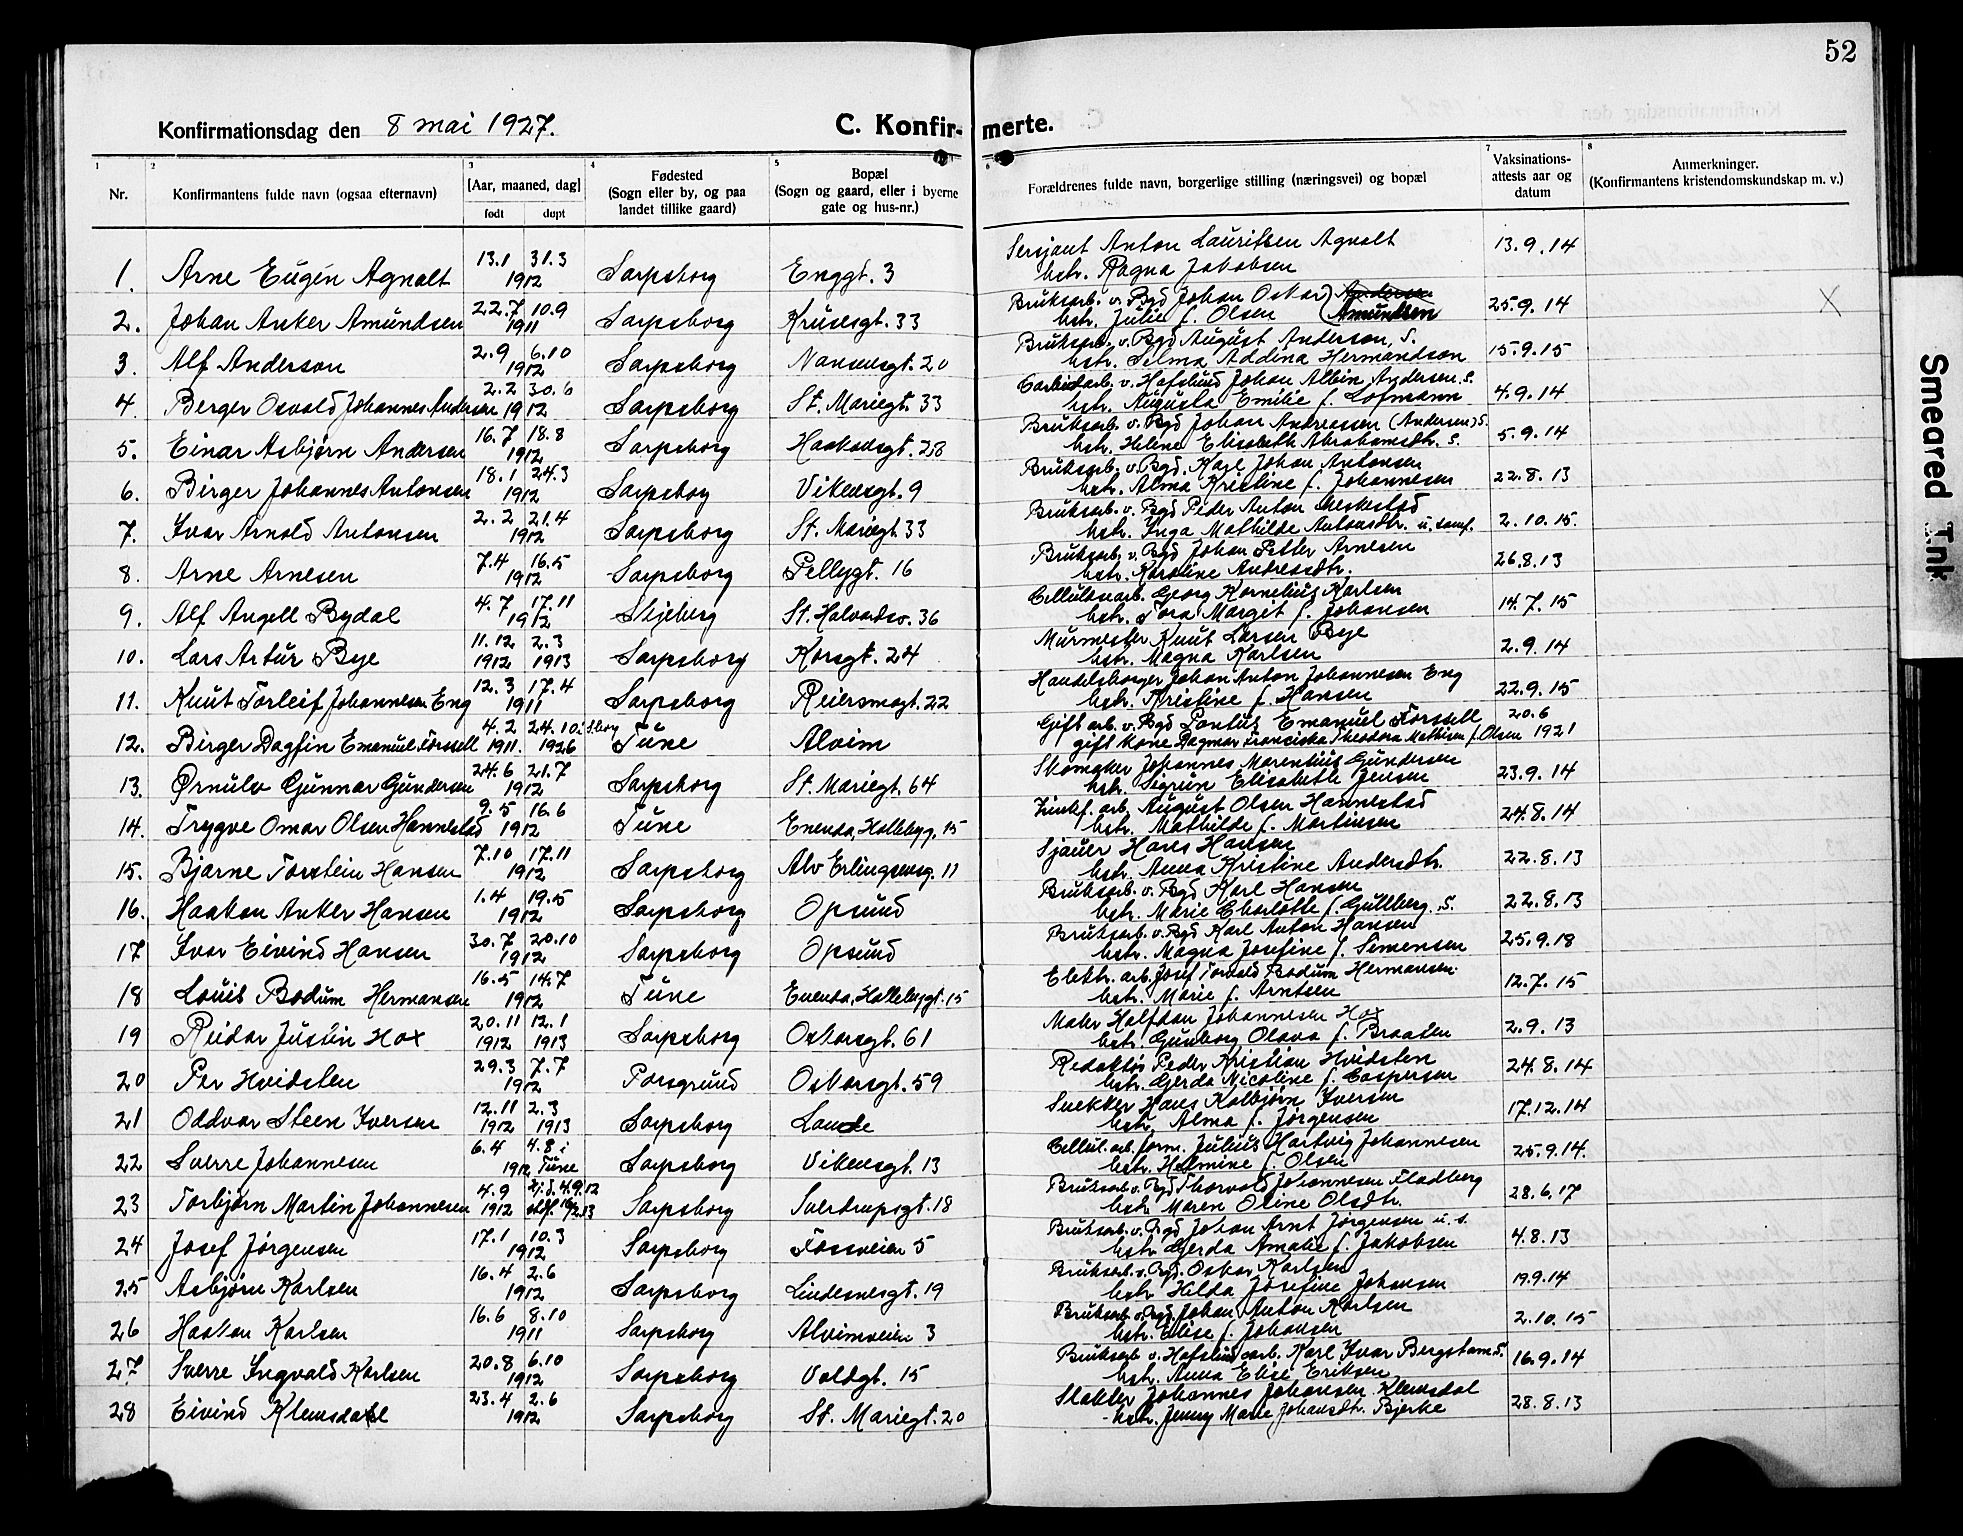 52
Konfirmationsdag den 8 mai 1927. C. Konfir- merte.
1 2 3 4 5 6 7 8
Nr. Konfirmantens fulde navn (ogsaa efternavn) [Aar, maaned, dag] født døpt Fødested (Sogn eller by, og paa landet tillike gaard) Bopæl (Sogn og gaard, eller i byerne gate og hus-nr.) Forældrenes fulde navn, borgerlige stilling (næringsvei) og bopæl Vaksinations-attests aar og datum Anmerkninger. (Konfirmantens kristendomskundskap m. v.)
1. Arne Eugén Agnalt 13.1 31.3 1912 Sarpsborg Enggt. 3 Sersjant Anton Lauritsen Agnalt 13.9.14
hstr. Ragna Jakobsen
2. Johan Anker Amundsen 22.7 10.9 1911 Sarpsborg Krusesgt. 33 Bruksarb. v. Bgd Johan Oskar Amundsen 25.9.14 X
hstr. Julie f. Olsen
3. Alf Anderson 2.9 6.10 1912 Sarpsborg Nansensgt. 20 Bruksarb. v. Bgd August Anderson, S. 15.9.15
hstr. Selma Addina Hermandson
4. Berger Osvald Johannes Andersen 2.2 30.6 1912 Sarpsborg St. Mariegt. 33 Carbidarb. v. Hafslund Johan Albin Andersen. S. 4.9.14
hstr. Augusta Emilie f. Lofmann
5. Einar Asbjørn Andersen 16.7 18.8 1912 Sarpsborg Haakonsgt. 28 Bruksarb. v. Bgd Johan Andreassen (Andersen) S. 5.9.14
hstr. Heline Elisabeth Abrahamsdtr. S.
6. Birger Johannes Antonsen 18.1 24.3 1912 Sarpsborg Vikensgt. 9 Bruksarb. v. Bgd. Karl Johan Antonsen 22.8.13
hstr. Alma Kristine f. Johannesen
7. Ivar Arnold Antonsen 2.2 21.4 1912 Sarpsborg St. Mariegt. 33 Bruksarb. v. Bgd Peder Anton 2.10.15.
hstr. Inga Mathilde Antonsdtr. u. samf.
8. Arne Arnesen 7.4 16.5 1912 Sarpsborg Pellygt. 16 Bruksarb. v. Bgd Johan Petter Arnesen 26.8.13
hstr. Karoline Andreasdtr.
9. Alf Angell Bydal 4.7 17.11 1912 Skjeberg St. Halvardsv. 36 Cellulosearb. Georg Kornelius Karlsen 14.7.15
hstr. Tora Margit f. Johansen
10. Lars Artur Bye 11.12 1912 2.3 1913 Sarpsborg Korsgt. 24 Murmester Knut Larsen Bye 2.9.14
hstr. Magna Karlsen
11. Knut Torleif Johannesen Eng 12.3 17.4 1911 Sarpsborg Reiersmogt. 22 Handelsborger Johan Anton Johannesen Eng 22.9.15
hstr. Kristine f. Hansen
12. Birger Dagfin Emanuel Forssell 4.2 1911. 24.10 i S.borg 1926 Tune Alvim Gift arb. v. Bgd Pontus Emanuel Forssell 20.6 1921
gift kone Dagmar Franciska Theodora Mathisen f. Olsen
13. Ørnulv Gunnar Gundersen 24.6 21.7 1912 Sarpsborg St. Mariegt. 64 Skomaker Johannes Marentius Gundersen 23.9.14
hstr. Sigrun Elisabeth Jensen
14. Trygve Omar Olsen Hannestad 9.5 16.6 1912 Tune Enenda, Hallebyg. 15 Zinkf. arb. August Olsen Hannestad 24.8.14
hstr. Mathilde f. Martinsen
15. Bjarne Torstein Hansen 7.10 17.11 1912 Sarpsborg Alv Erlingsensg. 11 Sjauer Hans Hansen 22.8.13
hstr. Anna Kristine Andersdtr.
16. Haakon Anker Hansen 1.4 19.5 1912 Sarpsborg Opsund Bruksarb. v. Bgd Karl Hansen 22.8.13
hstr. Marie Charlotte f. Gullberg. S.
17 Ivar Eivind Hansen 30.7 20.10 1912 Sarpsborg Opsund Bruksarb. v. Bgd Karl Anton Hansen 25.9.18
hstr. Magna Josefine f. Simensen
18 Louis Bodum Hermansen 16.5 14.7 1912 Tune Enenda, Hallebygt. 15 Elektr. arb. Josef Torvald Bodum Hermansen 12.7.15
hstr. Marie f. Arntsen
19 Reidar Justin Hox 20.11 1912 12.1 1913 Sarpsborg Oskarsgt. 61 Maler Halfdan Johannesen Hox 2.9.13
hstr. Gunborg Olava f. Braaten
20 Per Hvidsten 29.3 7.7 1912 Porsgrund Oskarsgt. 59 Redaktør Peder Kristian Hvidsten 24.8.14
hstr. Gerda Nicoline f. Caspersen
21 Oddvar Steen Iversen 12.11 1912 2.3 1913 Sarpsborg Lande Snekker Hans Kolbjørn Iversen 17.12.14
hstr. Alma f. Jørgensen
22 Sverre Johannesen 6.4 4.8 i 1912 Tune Sarpsborg Vikensgt. 13 Cellul. arb. form. Julius Hartvig Johannesen 25.9.14.
hstr. Helmine f. Olsen
23 Torbjørn Martin Johannesen 4.9 1912 Hj.d. 4.9.12 stdf. 16/2.13 Sarpsborg Sverdrupsgt. 18 Bruksarb. v. Bgd Thorvald Johannesen Fladberg 28.6.17
hstr. Maren Oline Olsdtr.
24 Josef Jørgensen 17.1 10.3 1912 Sarpsborg Fossveien 5 Bruksarb. v. Bgd Johan Arnt Jørgensen u. s. 4.8.13
hstr. Gerda Amalie f. Jakobsen
25 Asbjørn Karlsen 16.4 2.6 1912 Sarpsborg Lindesnesgt. 19 Bruksarb. v. Bgd. Oskar Karlsen 19.9.14
hstr. Hilda Josefine Johansen
26 Haakon Karlsen 16.6 8.10 1911 Sarpsborg Alvimveien 3 Bruksarb. v. Bgd. Johan Anton Karlsen 2.10.15
hstr. Elise f. Johansen
27 Sverre Ingvald Karlsen 20.8 6.10 1912 Sarpsborg Voldgt. 15 Bruksarb v. Hafslund carb. Karl Ivar Bergstam S. 16.9.14
hstr. Anna Elise Eriksen
28 Eivind Klemsdal 23.4 2.6 1912 Sarpsborg St. Mariegt. 20 Slakter Johannes Johansen Klemsdal 28.8.13
hstr. Jenny Marie Johansdtr. Bjerke
Smeared Ink